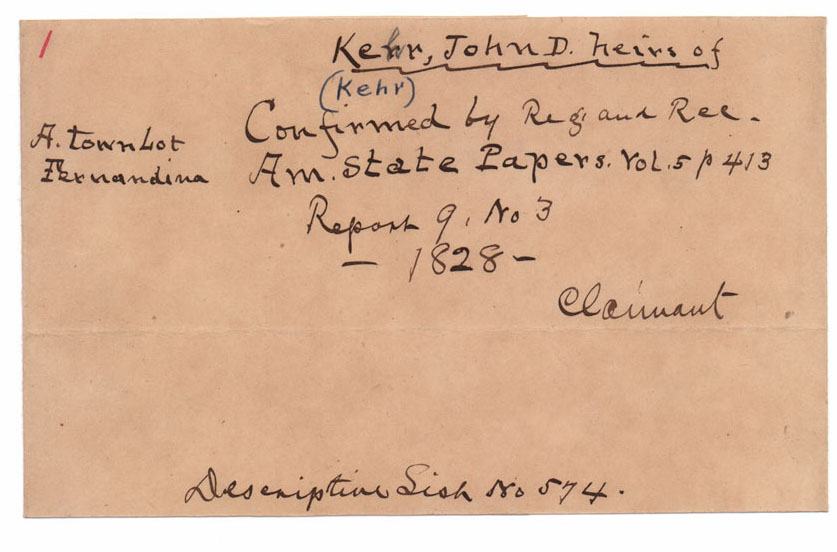 1
Kehr, John D. heirs of
(Kehr)
Confirmed by Reg. and Rec.
A. town Lot
Fernandina
Am. State Papers. Vol. 5 p 413
Report 9, No 3
— 1828 —
Claimant
Descriptive List No 574.